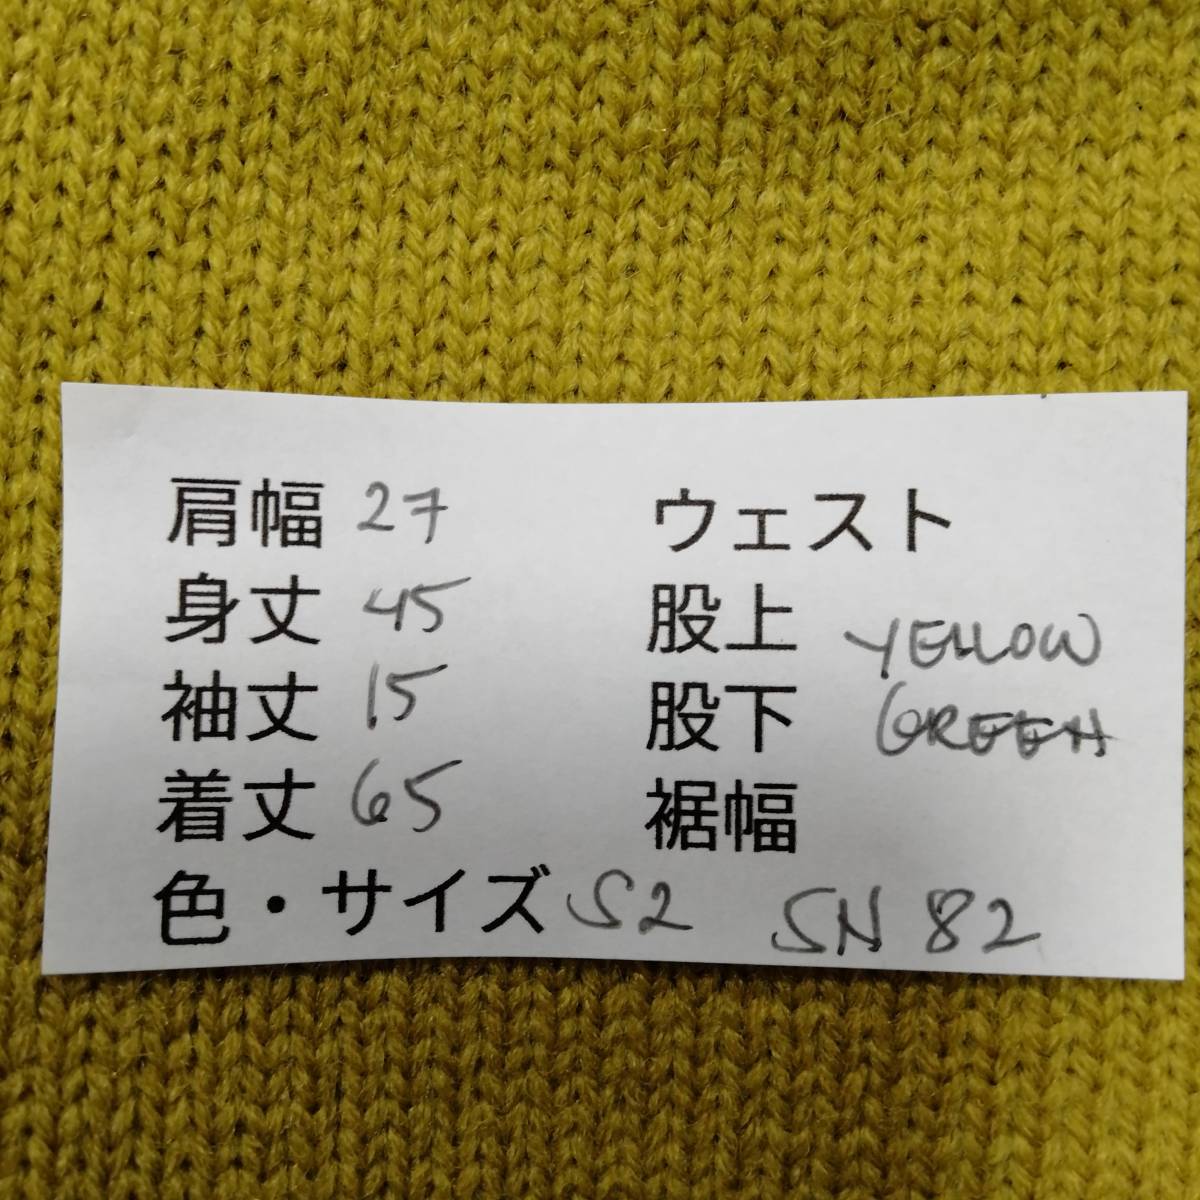 肩幅 27
身丈 45
袖丈 15
着丈 65
色・サイズ S2 SN 82
ウェスト
股上 YELLOW
股下 GREEN
裾幅